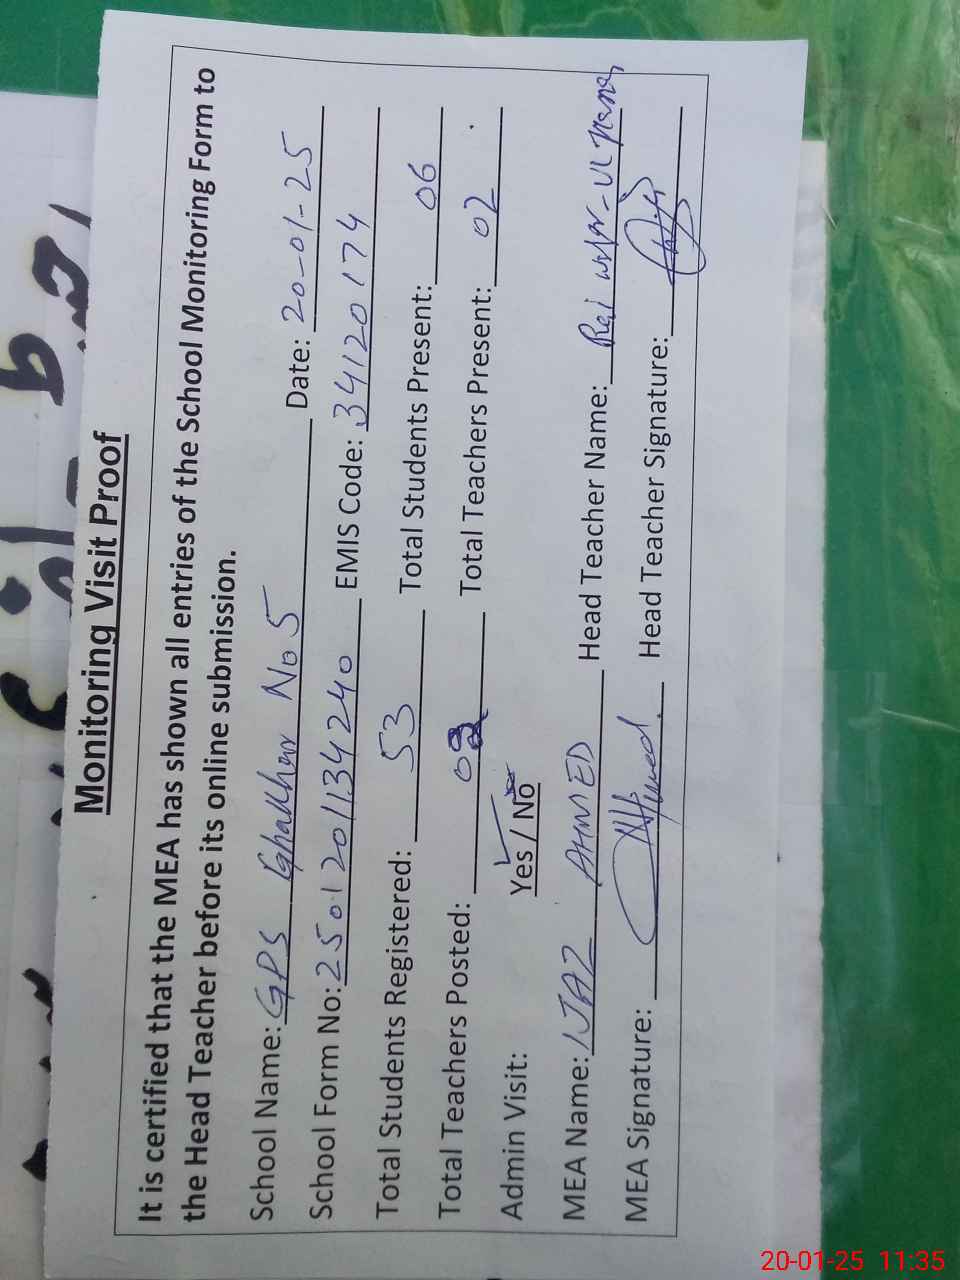 Monitoring Visit Proof
It is certified that the MEA has shown all entries of the School Monitoring Form to
the Head Teacher before its online submission.
School Name: GPS Ghakhar No 5 Date: 20-01-25
School Form No: 2501201134240 EMIS Code: 34120174
Total Students Registered: 53 Total Students Present: 06
Total Teachers Posted: 02 Total Teachers Present: 02
Admin Visit: Yes / No
MEA Name: IJAZ AHMED Head Teacher Name: Rai -Ul
MEA Signature: Head Teacher Signature:
20-01-25 11:35